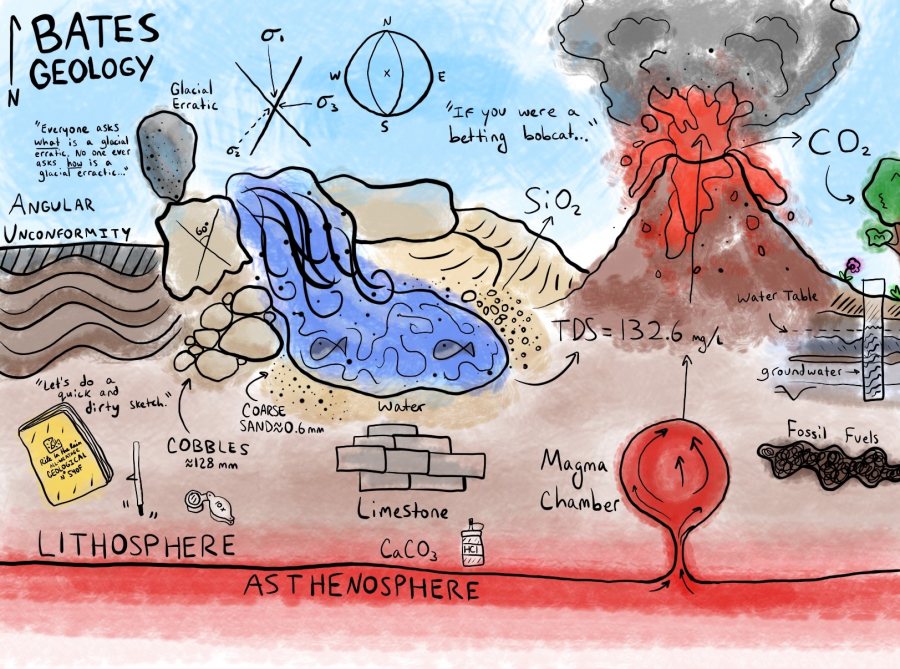 BATES
GEOLOGY
N
σ1
σ2
σ3
N
W
E
S
Glacial
Erratic
"Everyone asks
what is a glacial
erratic. No one ever
asks how is a
glacial erractic..."
"If you were a
betting bobcat..."
CO2
ANGULAR
UNCONFORMITY
60°
SiO2
Water Table
TDS = 132.6 mg/L
groundwater
"Let's do a
quick and
dirty sketch."
COARSE
SAND≈0.6mm
Water
COBBLES
≈128 mm
Rite in the Rain
ALL-WEATHER
GEOLOGICAL
10x
" "
Limestone
CaCO3
HCl
Magma
Chamber
Fossil Fuels
LITHOSPHERE
ASTHENOSPHERE